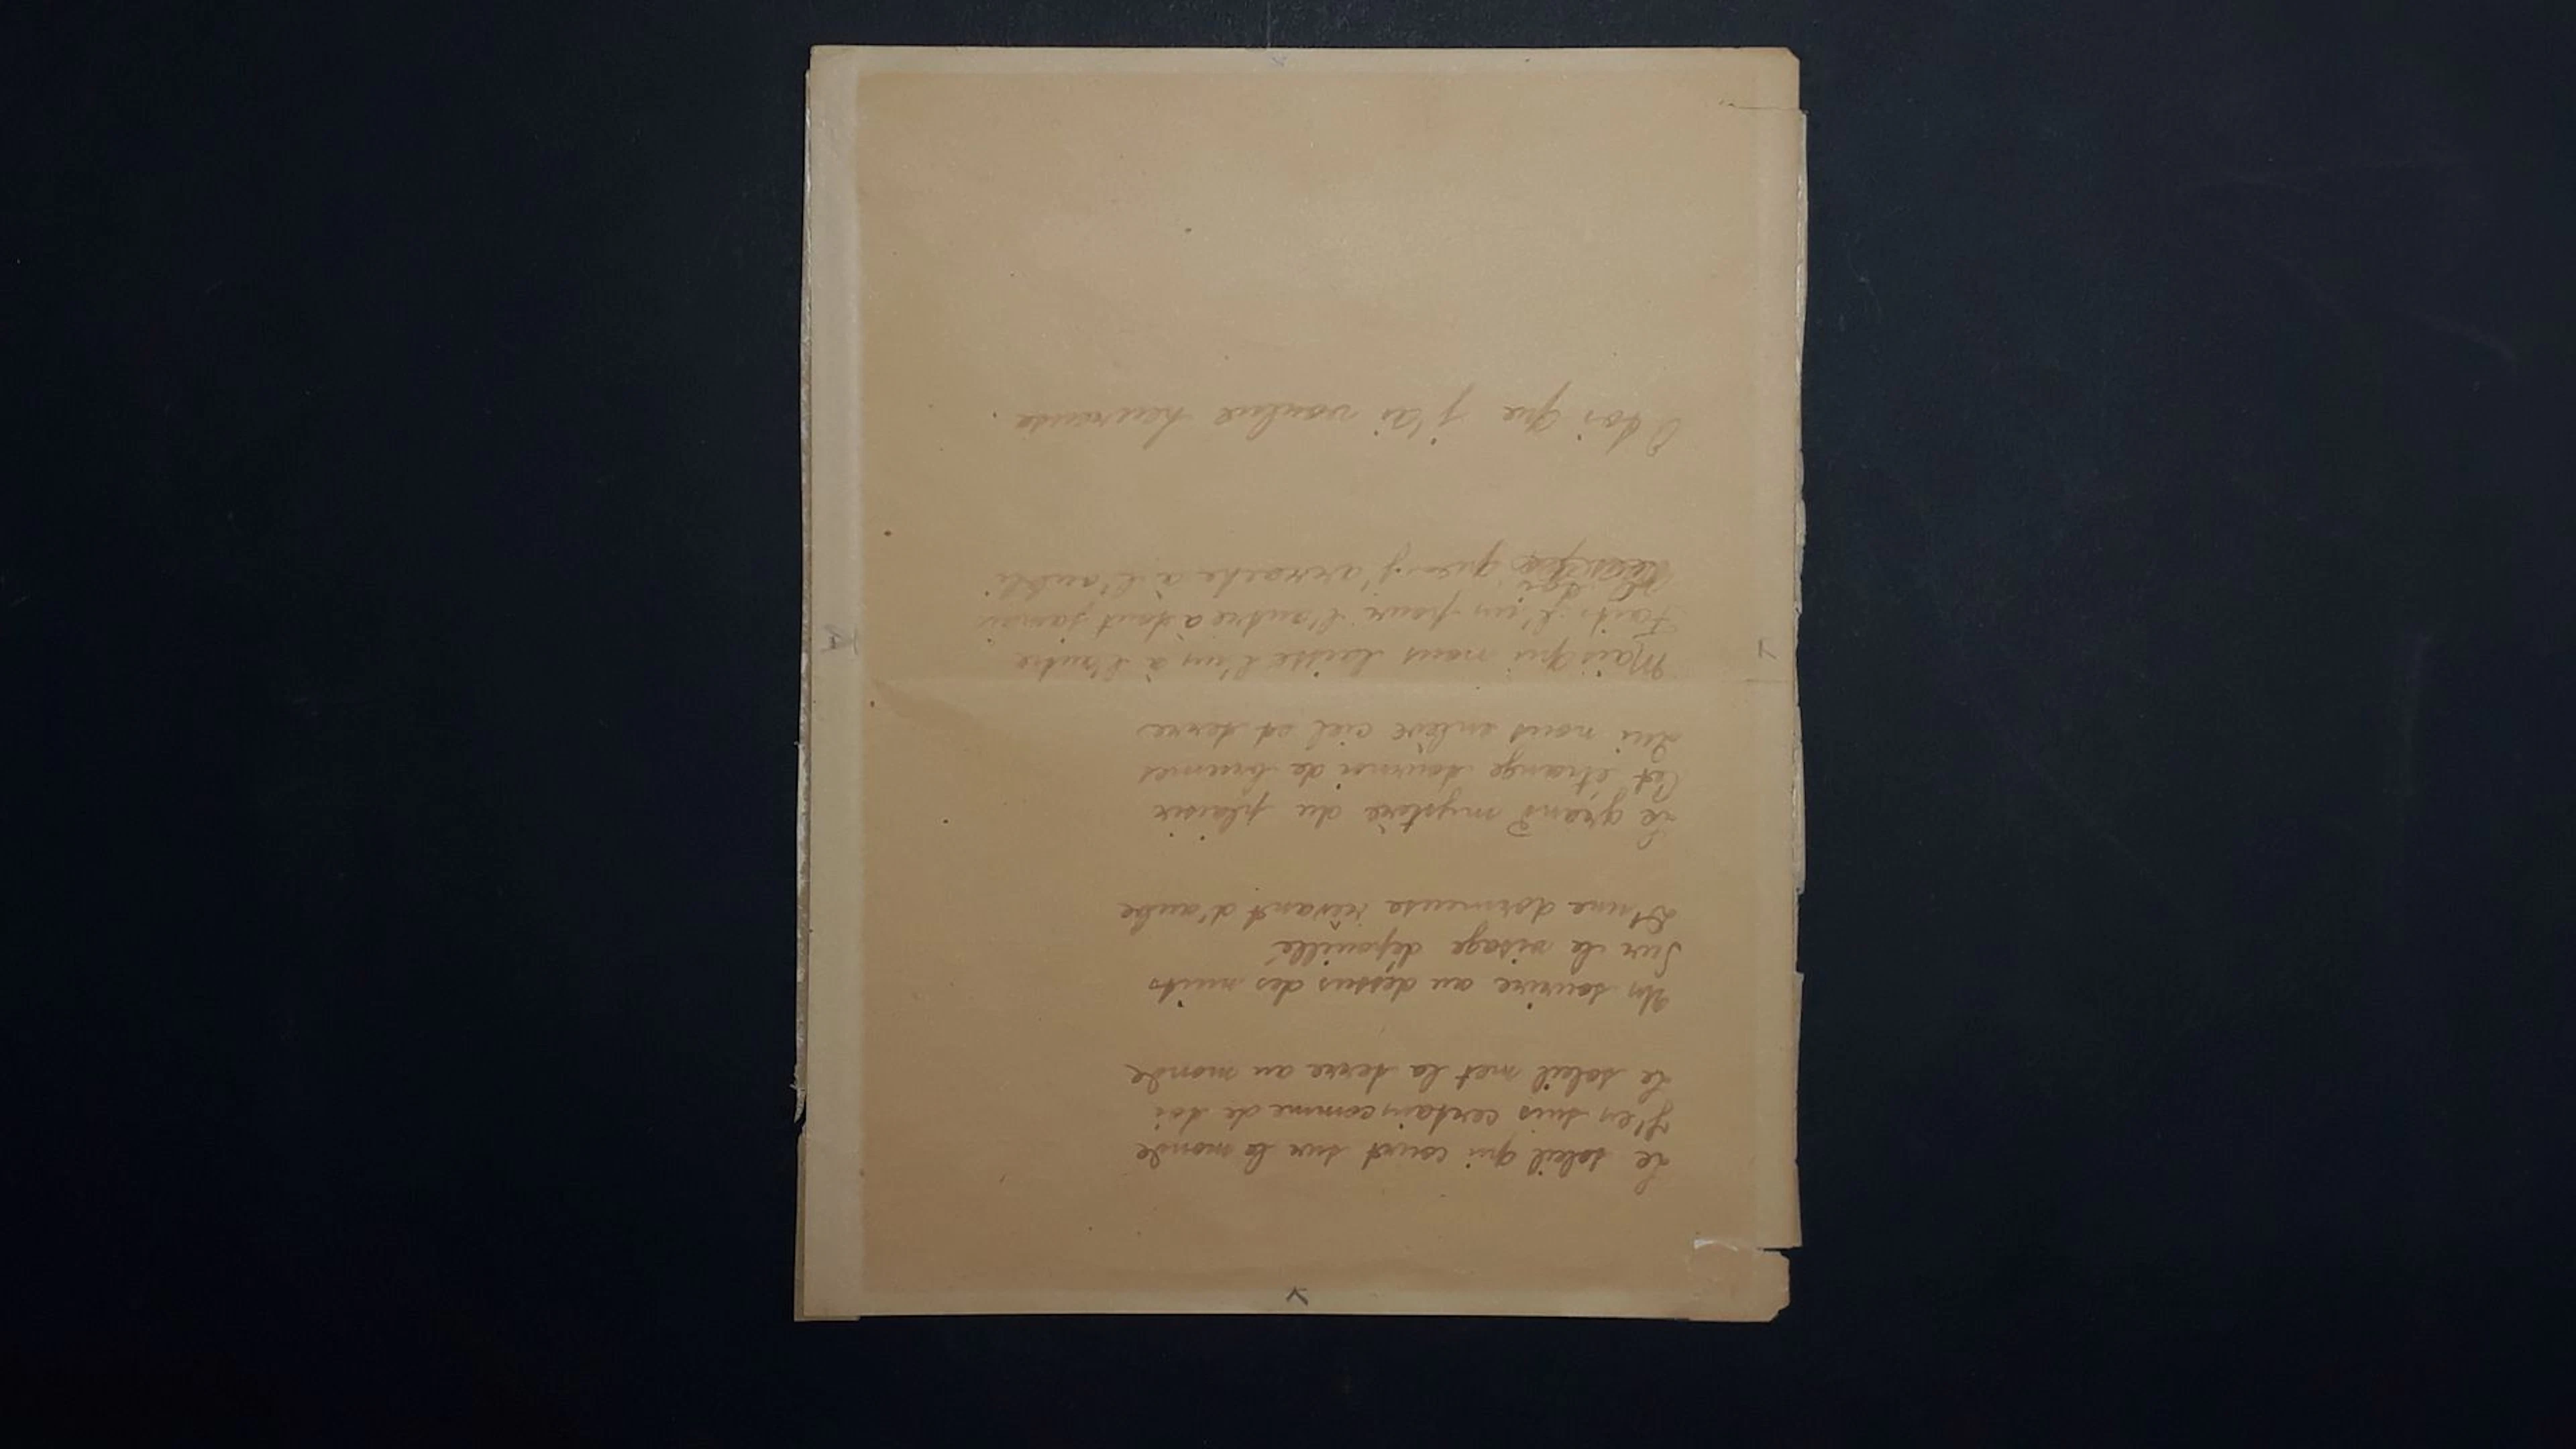 Le soleil qui court sur le monde
J'en suis certain comme de toi
Le soleil met la terre au monde
Un sourire au dessus des nuits
Sur le visage dépouillé
D'une dormeuse rêvant d'aube
Le grand mystère du plaisir
Cet étrange tournoi de brumes
Qui nous enlève ciel et terre
Mais qui nous laisse l'un à l'autre
Faits l'un pour l'autre à tout jamais
O toi que j'arrache à l'oubli
O toi que j'ai voulue heureuse.